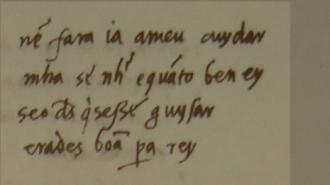 nẽ fara ia ameu cuydar
mha sẽ nhr̃ equãto ben ey
seo d̃s q̇sesse guysar
erades boã pa rey